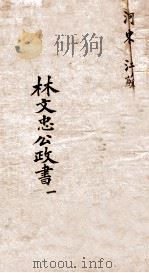 河東 江蘇
林文忠公政書一
mtoou.info